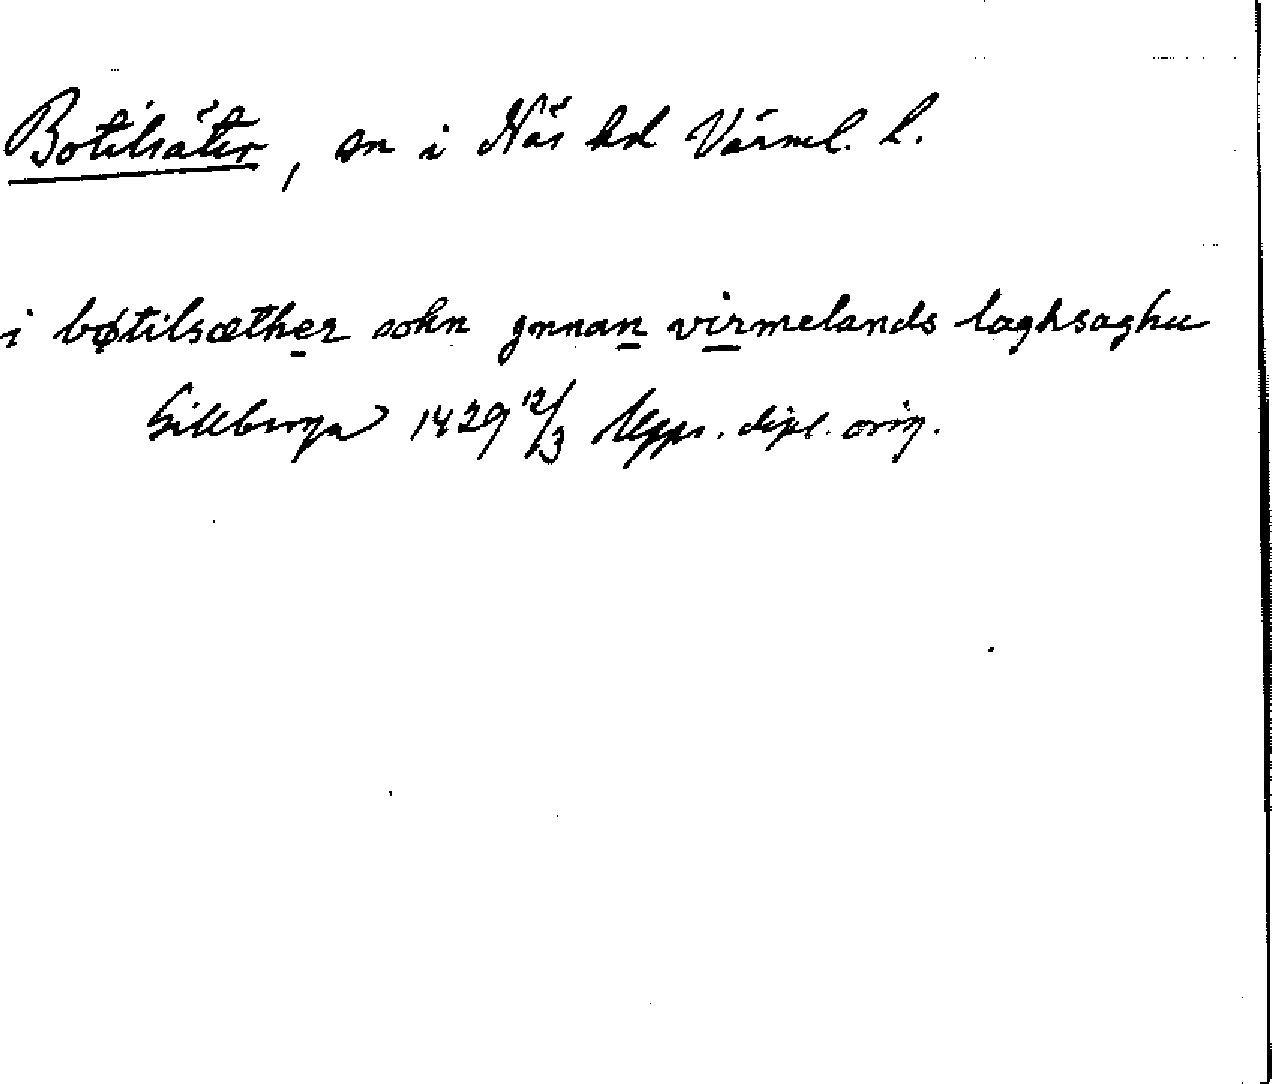 Botilsäter, sn i Näs hd Värml. l.
i bøtilsæther sokn ynnan virmelands laghsaghu
1429 12/3 Upps. dipl. orig.